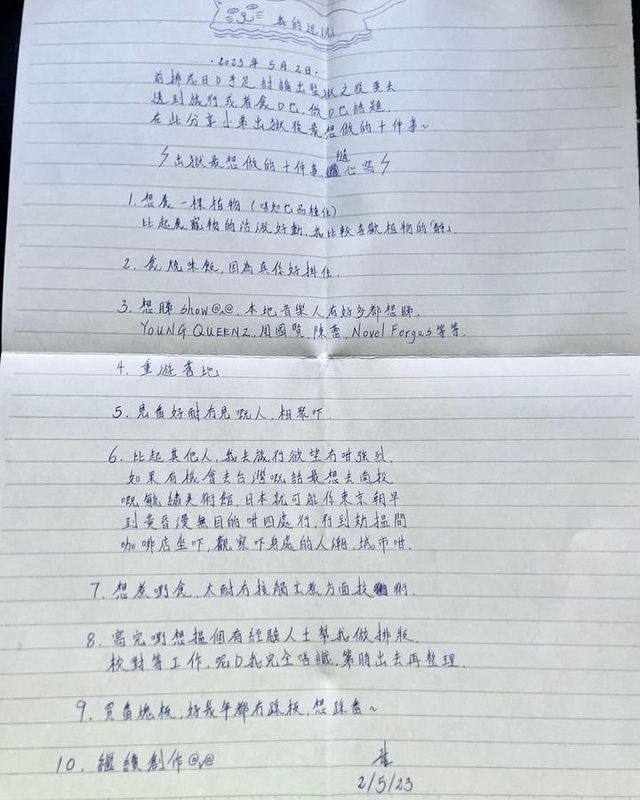 我的近況
·2023年5月2日·
前排成日D手足討論出監獄之後要去
邊到旅行或者食D乜、做D乜話題
在此分享小弟出獄後最想做的十件事~
⚡出獄最想做的十件事,隨心寫⚡
1. 想養一棵植物 (唔知乜品種住)
比起養寵物的活潑好動,我比較喜歡植物的「靜」
2. 食燒味飯,因為真係好掛住
3. 想睇show@.@,本地音樂人有好多都想睇
YOUNG QUEENZ,周國賢,陳蕾,Novel Fergus等等
4. 重遊舊地
5. 見番好耐冇見嘅人,相聚吓
6. 比起其他人,我去旅行欲望冇咁強烈
如果有機會去台灣嘅話最想去南投
嘅毓繡美術館,日本就可能係東京朝早
到黃昏漫無目的咁四處行,行到攰搵間
咖啡店坐吓,觀察吓身處的人潮,城市咁
7. 想煮嘢食,太耐冇接觸烹煮方面技術
8. 寫完嘢想搵個有經驗人士幫我做排版
校對等工作,呢D我完全唔識,第時出去再整理
9. 買番塊板,好幾年都冇踩板,想踩番~
10. 繼續創作@v@
2/5/23